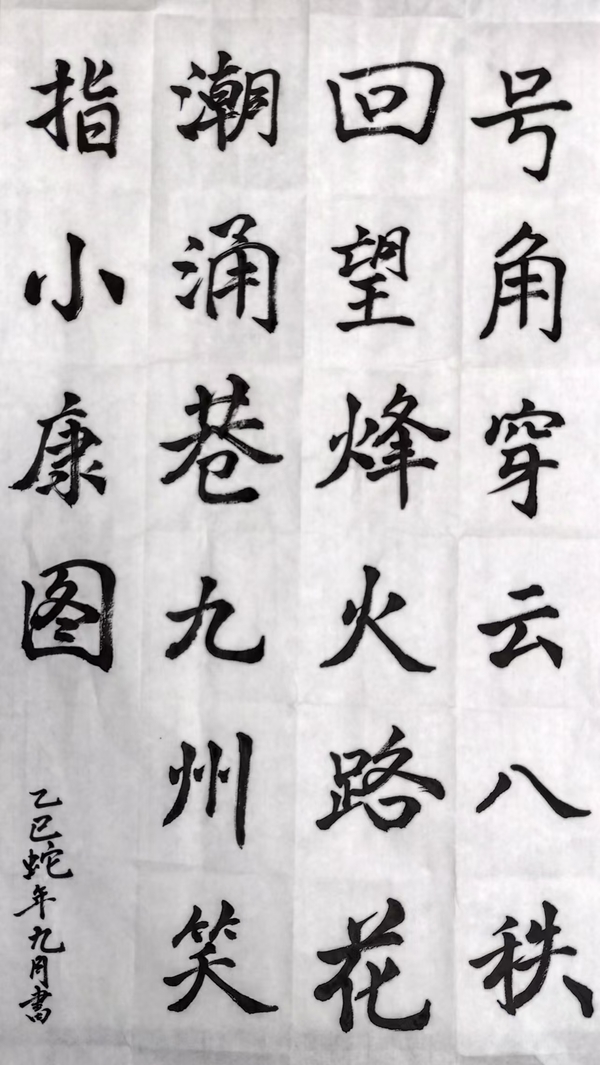 号角穿云八秩
回望烽火路花
潮涌巷九州笑
指小康图
乙巳蛇年九月书